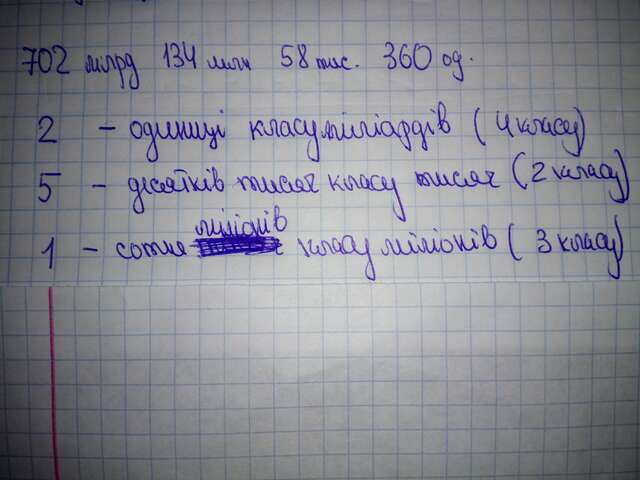 702 млрд 134 млн 58 тис. 360 од.
2 - одиниці класу мільярдів (4 класу)
5 - десятків тисяч класу тисяч (2 класу)
1 - сотня мільйонів класу мільйонів (3 класу)